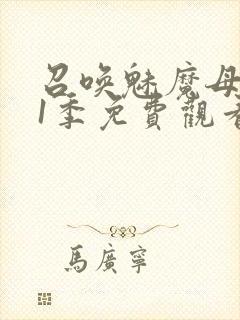 召唤魅魔母
1季免費觀看
馬廣寧